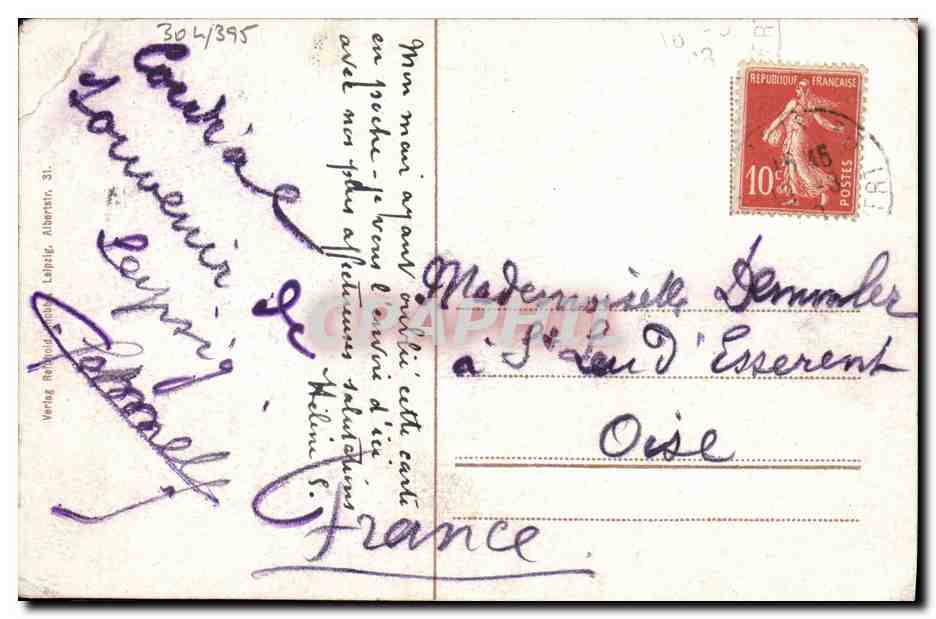 304/395
Cordial
Souvenir de
Leipzig
Mon mari ayant oublié cette carte
en poche - je vous l'envoie d'ici
avec nos plus affectueuses salutations
Hélène G.
Verlag Leipzig, Albertstr. 31.
REPUBLIQUE FRANÇAISE
10c
POSTES
Mademoiselle Demmler
à St Leu d'Esserent
Oise
France
CPAPHIL